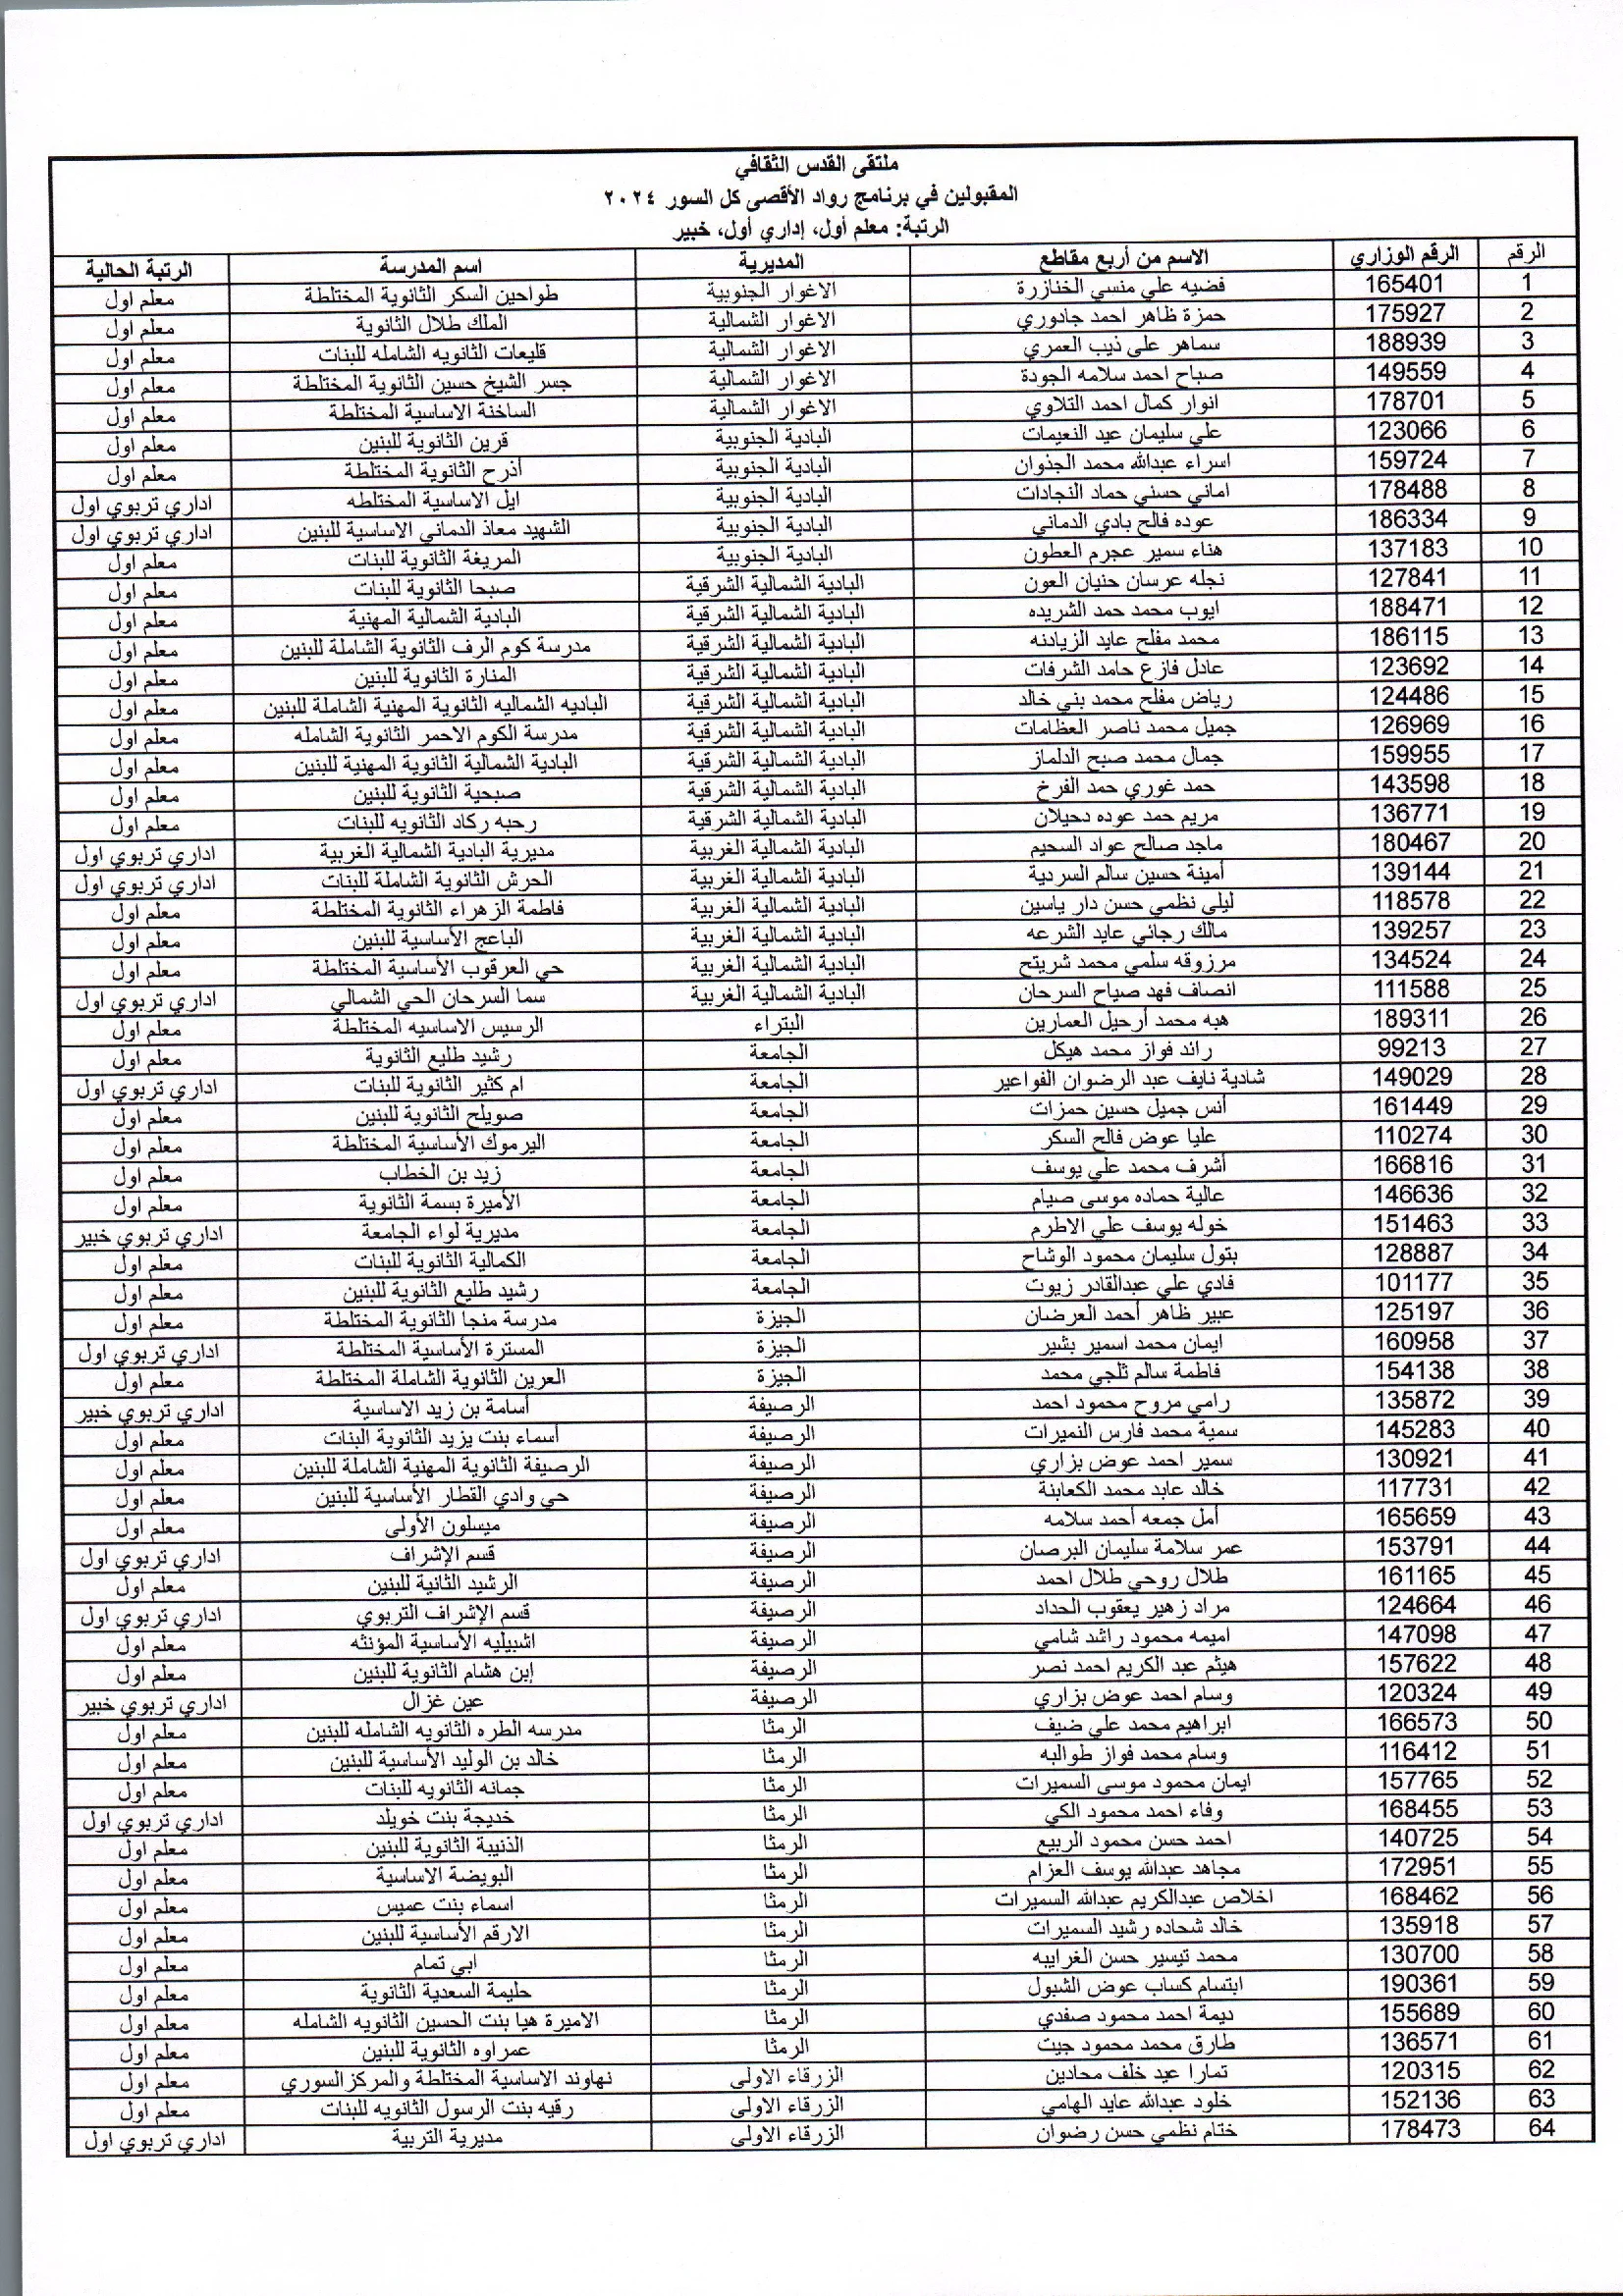 ملتقى القدس الثقافي
المقبولين في برنامج رواد الأقصى كل السور ٢٠٢٤
الرتبة: معلم أول، إداري أول، خبير
الرقم الرقم الوزاري الاسم من أربع مقاطع المديرية اسم المدرسة الرتبة الحالية
1 165401 فضيه علي منسي الخنازرة الاغوار الجنوبية طواحين السكر الثانوية المختلطة معلم اول
2 175927 حمزة ظاهر احمد جادوري الاغوار الشمالية الملك طلال الثانوية معلم اول
3 188939 سماهر علي ذيب العمري الاغوار الشمالية قليعات الثانويه الشامله للبنات معلم اول
4 149559 صباح احمد سلامه الجودة الاغوار الشمالية جسر الشيخ حسين الثانوية المختلطة معلم اول
5 178701 انوار كمال احمد التلاوي الاغوار الشمالية الساخنة الاساسية المختلطة معلم اول
6 123066 علي سليمان عيد النعيمات البادية الجنوبية قرين الثانوية للبنين معلم اول
7 159724 اسراء عبدالله محمد الجذوان البادية الجنوبية أذرح الثانوية المختلطة معلم اول
8 178488 اماني حسني حماد النجادات البادية الجنوبية ايل الاساسية المختلطه اداري تربوي اول
9 186334 عوده فالح بادي الدماني البادية الجنوبية الشهيد معاذ الدماني الاساسية للبنين اداري تربوي اول
10 137183 هناء سمير عجرم العطون البادية الجنوبية المريغة الثانوية للبنات معلم اول
11 127841 نجله عرسان حنيان العون البادية الشمالية الشرقية صبحا الثانوية للبنات معلم اول
12 188471 ايوب محمد حمد الشريده البادية الشمالية الشرقية البادية الشمالية المهنية معلم اول
13 186115 محمد مفلح عايد الزيادنه البادية الشمالية الشرقية مدرسة كوم الرف الثانوية الشاملة للبنين معلم اول
14 123692 عادل فازع حامد الشرفات البادية الشمالية الشرقية المنارة الثانوية للبنين معلم اول
15 124486 رياض مفلح محمد بني خالد البادية الشمالية الشرقية الباديه الشماليه الثانوية المهنية الشاملة للبنين معلم اول
16 126969 جميل محمد ناصر العظامات البادية الشمالية الشرقية مدرسة الكوم الاحمر الثانوية الشامله معلم اول
17 159955 جمال محمد صبح الدلماز البادية الشمالية الشرقية البادية الشمالية الثانوية المهنية للبنين معلم اول
18 143598 حمد غوري حمد الفرخ البادية الشمالية الشرقية صبحية الثانوية للبنين معلم اول
19 136771 مريم حمد عوده دحيلان البادية الشمالية الشرقية رحبه ركاد الثانويه للبنات معلم اول
20 180467 ماجد صالح عواد السحيم البادية الشمالية الغربية مديرية البادية الشمالية الغربية اداري تربوي اول
21 139144 أمينة حسين سالم السردية البادية الشمالية الغربية الحرش الثانوية الشاملة للبنات اداري تربوي اول
22 118578 ليلى نظمي حسن دار ياسين البادية الشمالية الغربية فاطمة الزهراء الثانوية المختلطة معلم اول
23 139257 مالك رجائي عايد الشرعه البادية الشمالية الغربية الباعج الأساسية للبنين معلم اول
24 134524 مرزوقه سلمي محمد شريتح البادية الشمالية الغربية حي العرقوب الأساسية المختلطة معلم اول
25 111588 انصاف فهد صياح السرحان البادية الشمالية الغربية سما السرحان الحي الشمالي اداري تربوي اول
26 189311 هبه محمد أرحيل العمارين البتراء الرسيس الاساسيه المختلطة معلم اول
27 99213 رائد فواز محمد هيكل الجامعة رشيد طليع الثانوية معلم اول
28 149029 شادية نايف عبد الرضوان الفواعير الجامعة ام كثير الثانوية للبنات اداري تربوي اول
29 161449 أنس جميل حسين حمزات الجامعة صويلح الثانوية للبنين معلم اول
30 110274 عليا عوض فالح السكر الجامعة اليرموك الأساسية المختلطة معلم اول
31 166816 أشرف محمد علي يوسف الجامعة زيد بن الخطاب معلم اول
32 146636 عالية حماده موسى صيام الجامعة الأميرة بسمة الثانوية معلم اول
33 151463 خوله يوسف علي الاطرم الجامعة مديرية لواء الجامعة اداري تربوي خبير
34 128887 بتول سليمان محمود الوشاح الجامعة الكمالية الثانوية للبنات معلم اول
35 101177 فادي علي عبدالقادر زيوت الجامعة رشيد طليع الثانوية للبنين معلم اول
36 125197 عبير ظاهر أحمد العرضان الجيزة مدرسة منجا الثانوية المختلطة معلم اول
37 160958 ايمان محمد اسمير بشير الجيزة المسترة الأساسية المختلطة اداري تربوي اول
38 154138 فاطمة سالم ثلجي محمد الجيزة العرين الثانوية الشاملة المختلطة معلم اول
39 135872 رامي مروح محمود احمد الرصيفة أسامة بن زيد الاساسية اداري تربوي خبير
40 145283 سمية محمد فارس النميرات الرصيفة أسماء بنت يزيد الثانوية البنات معلم اول
41 130921 سمير احمد عوض بزاري الرصيفة الرصيفة الثانوية المهنية الشاملة للبنين معلم اول
42 117731 خالد عابد محمد الكعابنة الرصيفة حي وادي القطار الأساسية للبنين معلم اول
43 165659 أمل جمعه أحمد سلامه الرصيفة ميسلون الأولى معلم اول
44 153791 عمر سلامة سليمان البرصان الرصيفة قسم الإشراف اداري تربوي اول
45 161165 طلال روحي طلال احمد الرصيفة الرشيد الثانية للبنين معلم اول
46 124664 مراد زهير يعقوب الحداد الرصيفة قسم الإشراف التربوي اداري تربوي اول
47 147098 اميمه محمود راشد شامي الرصيفة اشبيليه الأساسية المؤنثه معلم اول
48 157622 هيثم عبد الكريم احمد نصر الرصيفة إبن هشام الثانوية للبنين معلم اول
49 120324 وسام احمد عوض بزاري الرصيفة عين غزال اداري تربوي خبير
50 166573 ابراهيم محمد علي ضيف الرمثا مدرسه الطره الثانويه الشامله للبنين معلم اول
51 116412 وسام محمد فواز طوالبه الرمثا خالد بن الوليد الأساسية للبنين معلم اول
52 157765 ايمان محمود موسى السميرات الرمثا جمانه الثانويه للبنات معلم اول
53 168455 وفاء احمد محمود الكي الرمثا خديجة بنت خويلد اداري تربوي اول
54 140725 احمد حسن محمود الربيع الرمثا الذنيبة الثانوية للبنين معلم اول
55 172951 مجاهد عبدالله يوسف العزام الرمثا البويضة الاساسية معلم اول
56 168462 اخلاص عبدالكريم عبدالله السميرات الرمثا اسماء بنت عميس معلم اول
57 135918 خالد شحاده رشيد السميرات الرمثا الارقم الأساسية للبنين معلم اول
58 130700 محمد تيسير حسن الغرايبه الرمثا ابي تمام معلم اول
59 190361 ابتسام كساب عوض الشبول الرمثا حليمة السعدية الثانوية معلم اول
60 155689 ديمة احمد محمود صفدي الرمثا الاميرة هيا بنت الحسين الثانويه الشامله معلم اول
61 136571 طارق محمد محمود جيت الرمثا عمراوه الثانوية للبنين معلم اول
62 120315 تمارا عيد خلف محادين الزرقاء الاولى نهاوند الاساسية المختلطة والمركز السوري معلم اول
63 152136 خلود عبدالله عايد الهامي الزرقاء الاولى رقيه بنت الرسول الثانويه للبنات معلم اول
64 178473 ختام نظمي حسن رضوان الزرقاء الاولى مديرية التربية اداري تربوي اول